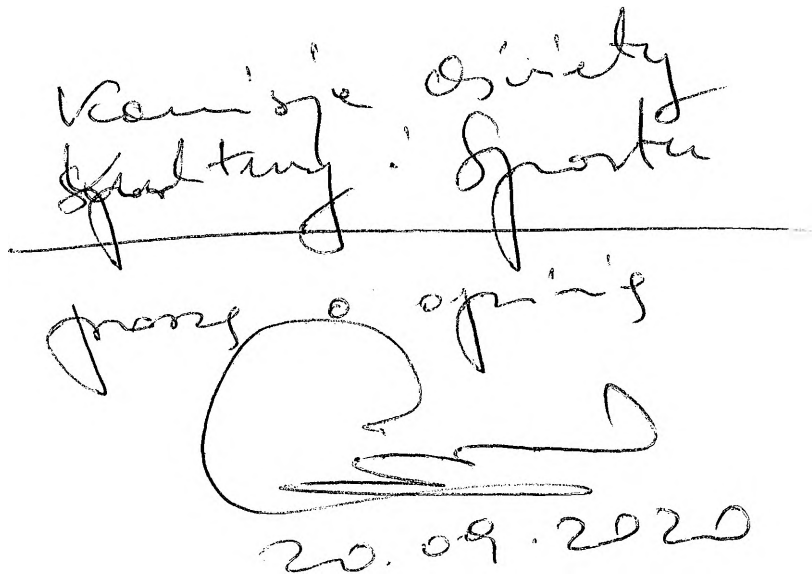 Komisja Oświaty
Kultury i Sportu
proszę o opinię
20.09.2020